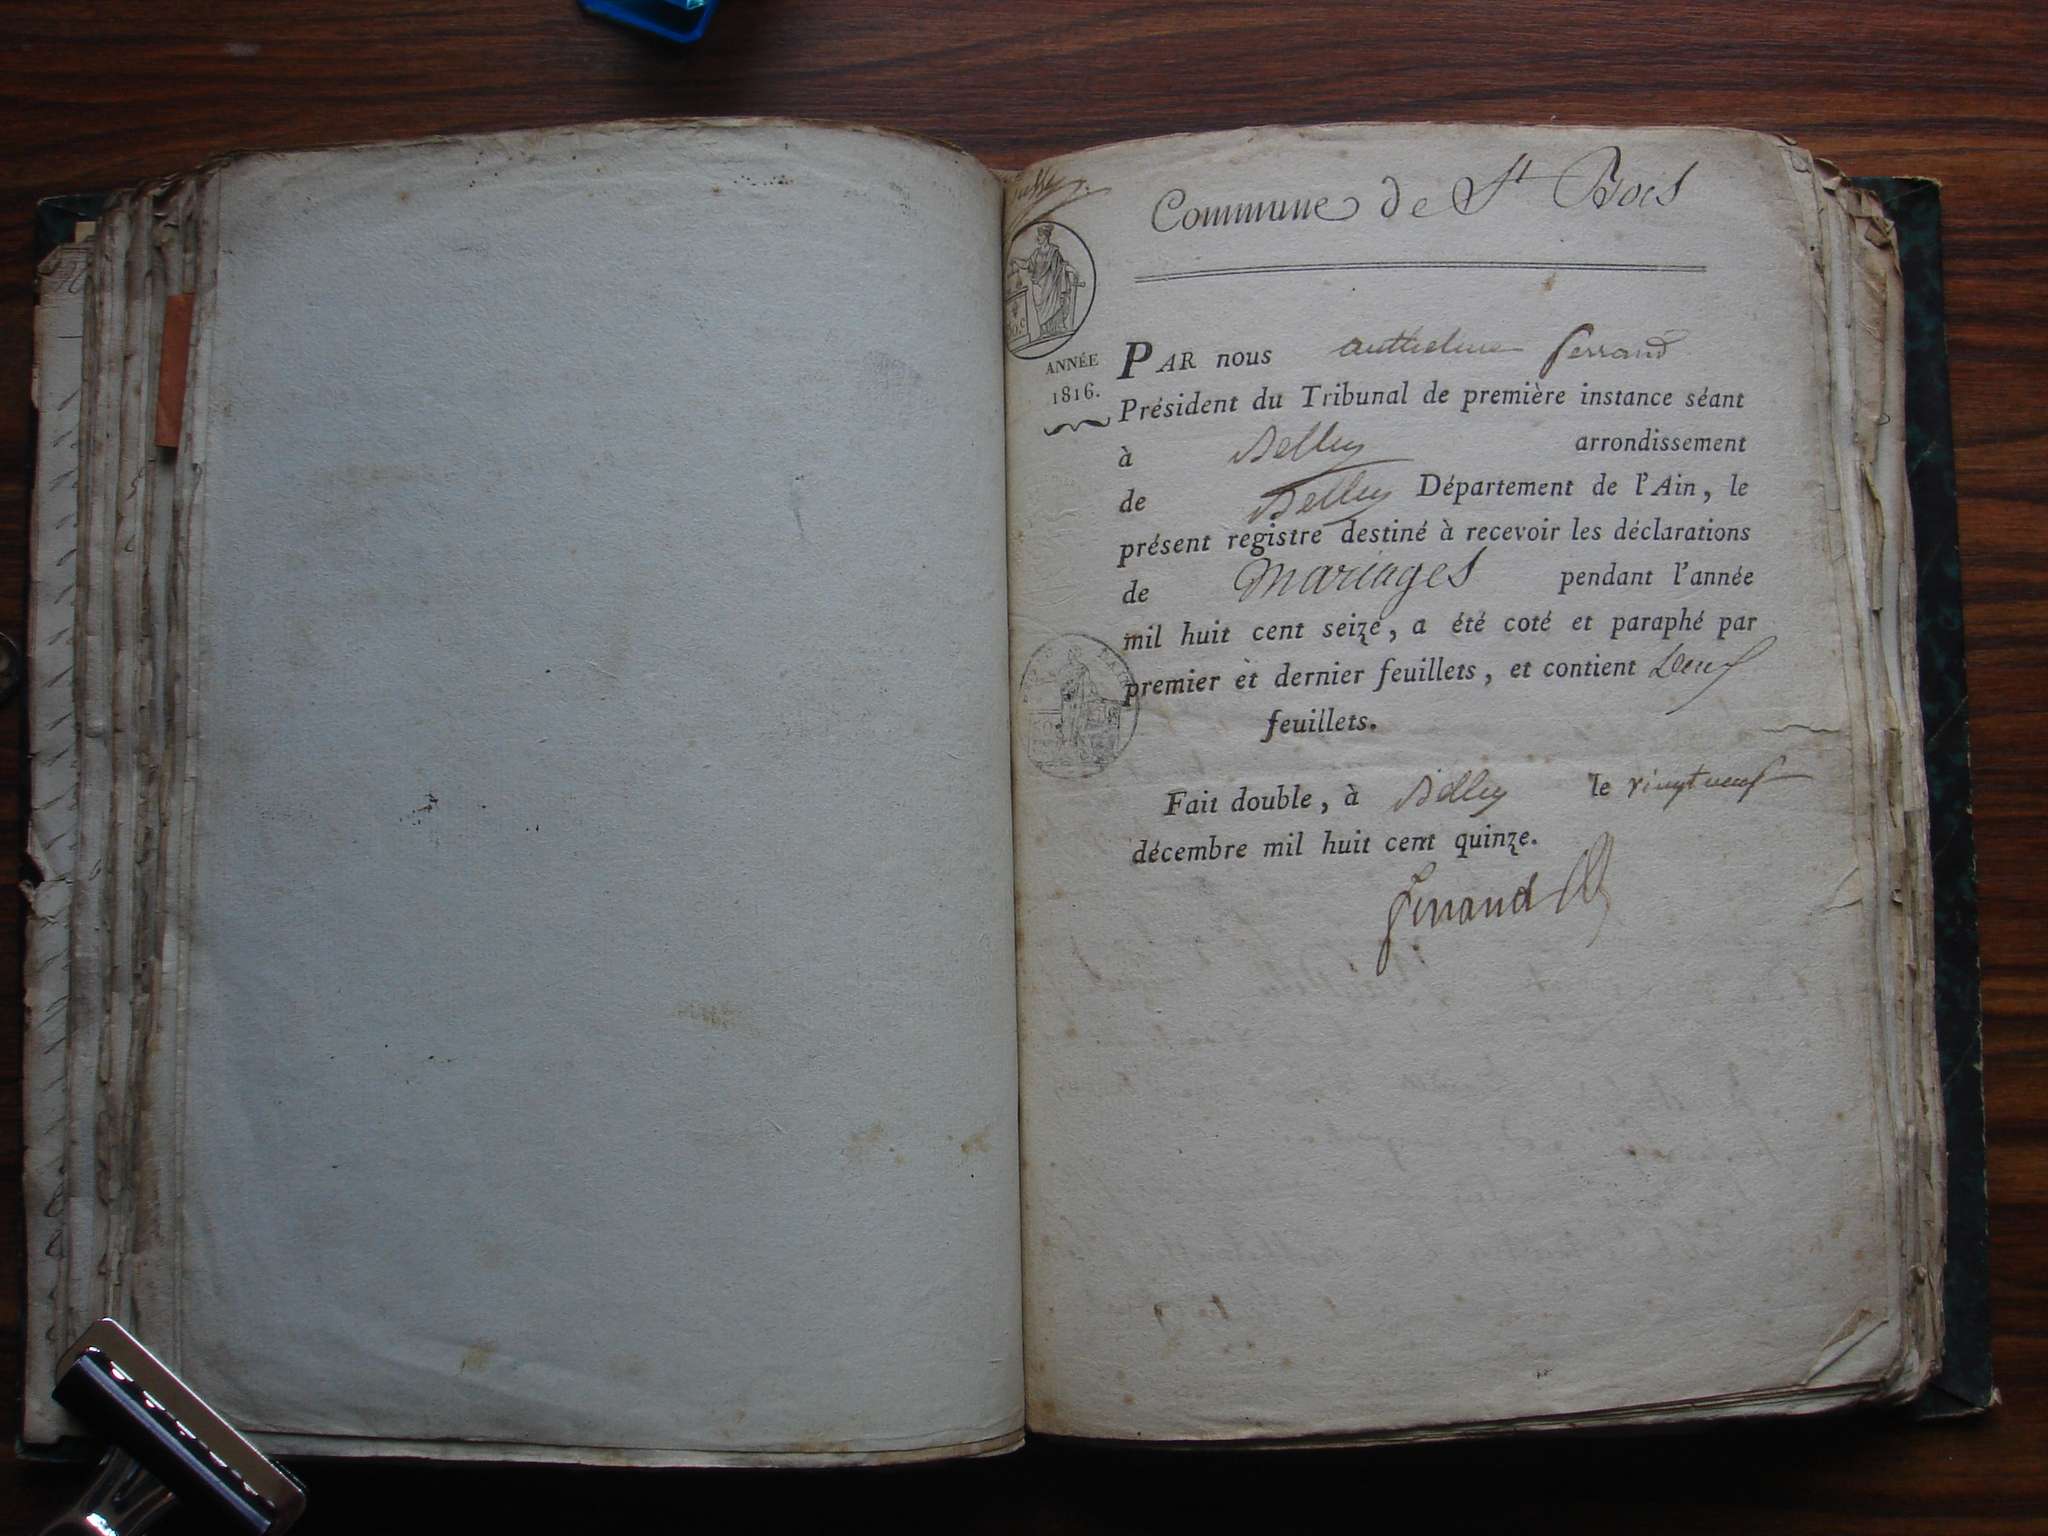 Commune de St Bois
ANNÉE
1816.
PAR nous anthelme ferrand
Président du Tribunal de première instance séant
à Belley arrondissement
de Belley Département de l'Ain, le
présent registre destiné à recevoir les déclarations
de Mariages pendant l'année
mil huit cent seize, a été coté et paraphé par
premier et dernier feuillets, et contient Deux
feuillets.
Fait double, à Belley le vingt neuf
décembre mil huit cent quinze.
ferrand